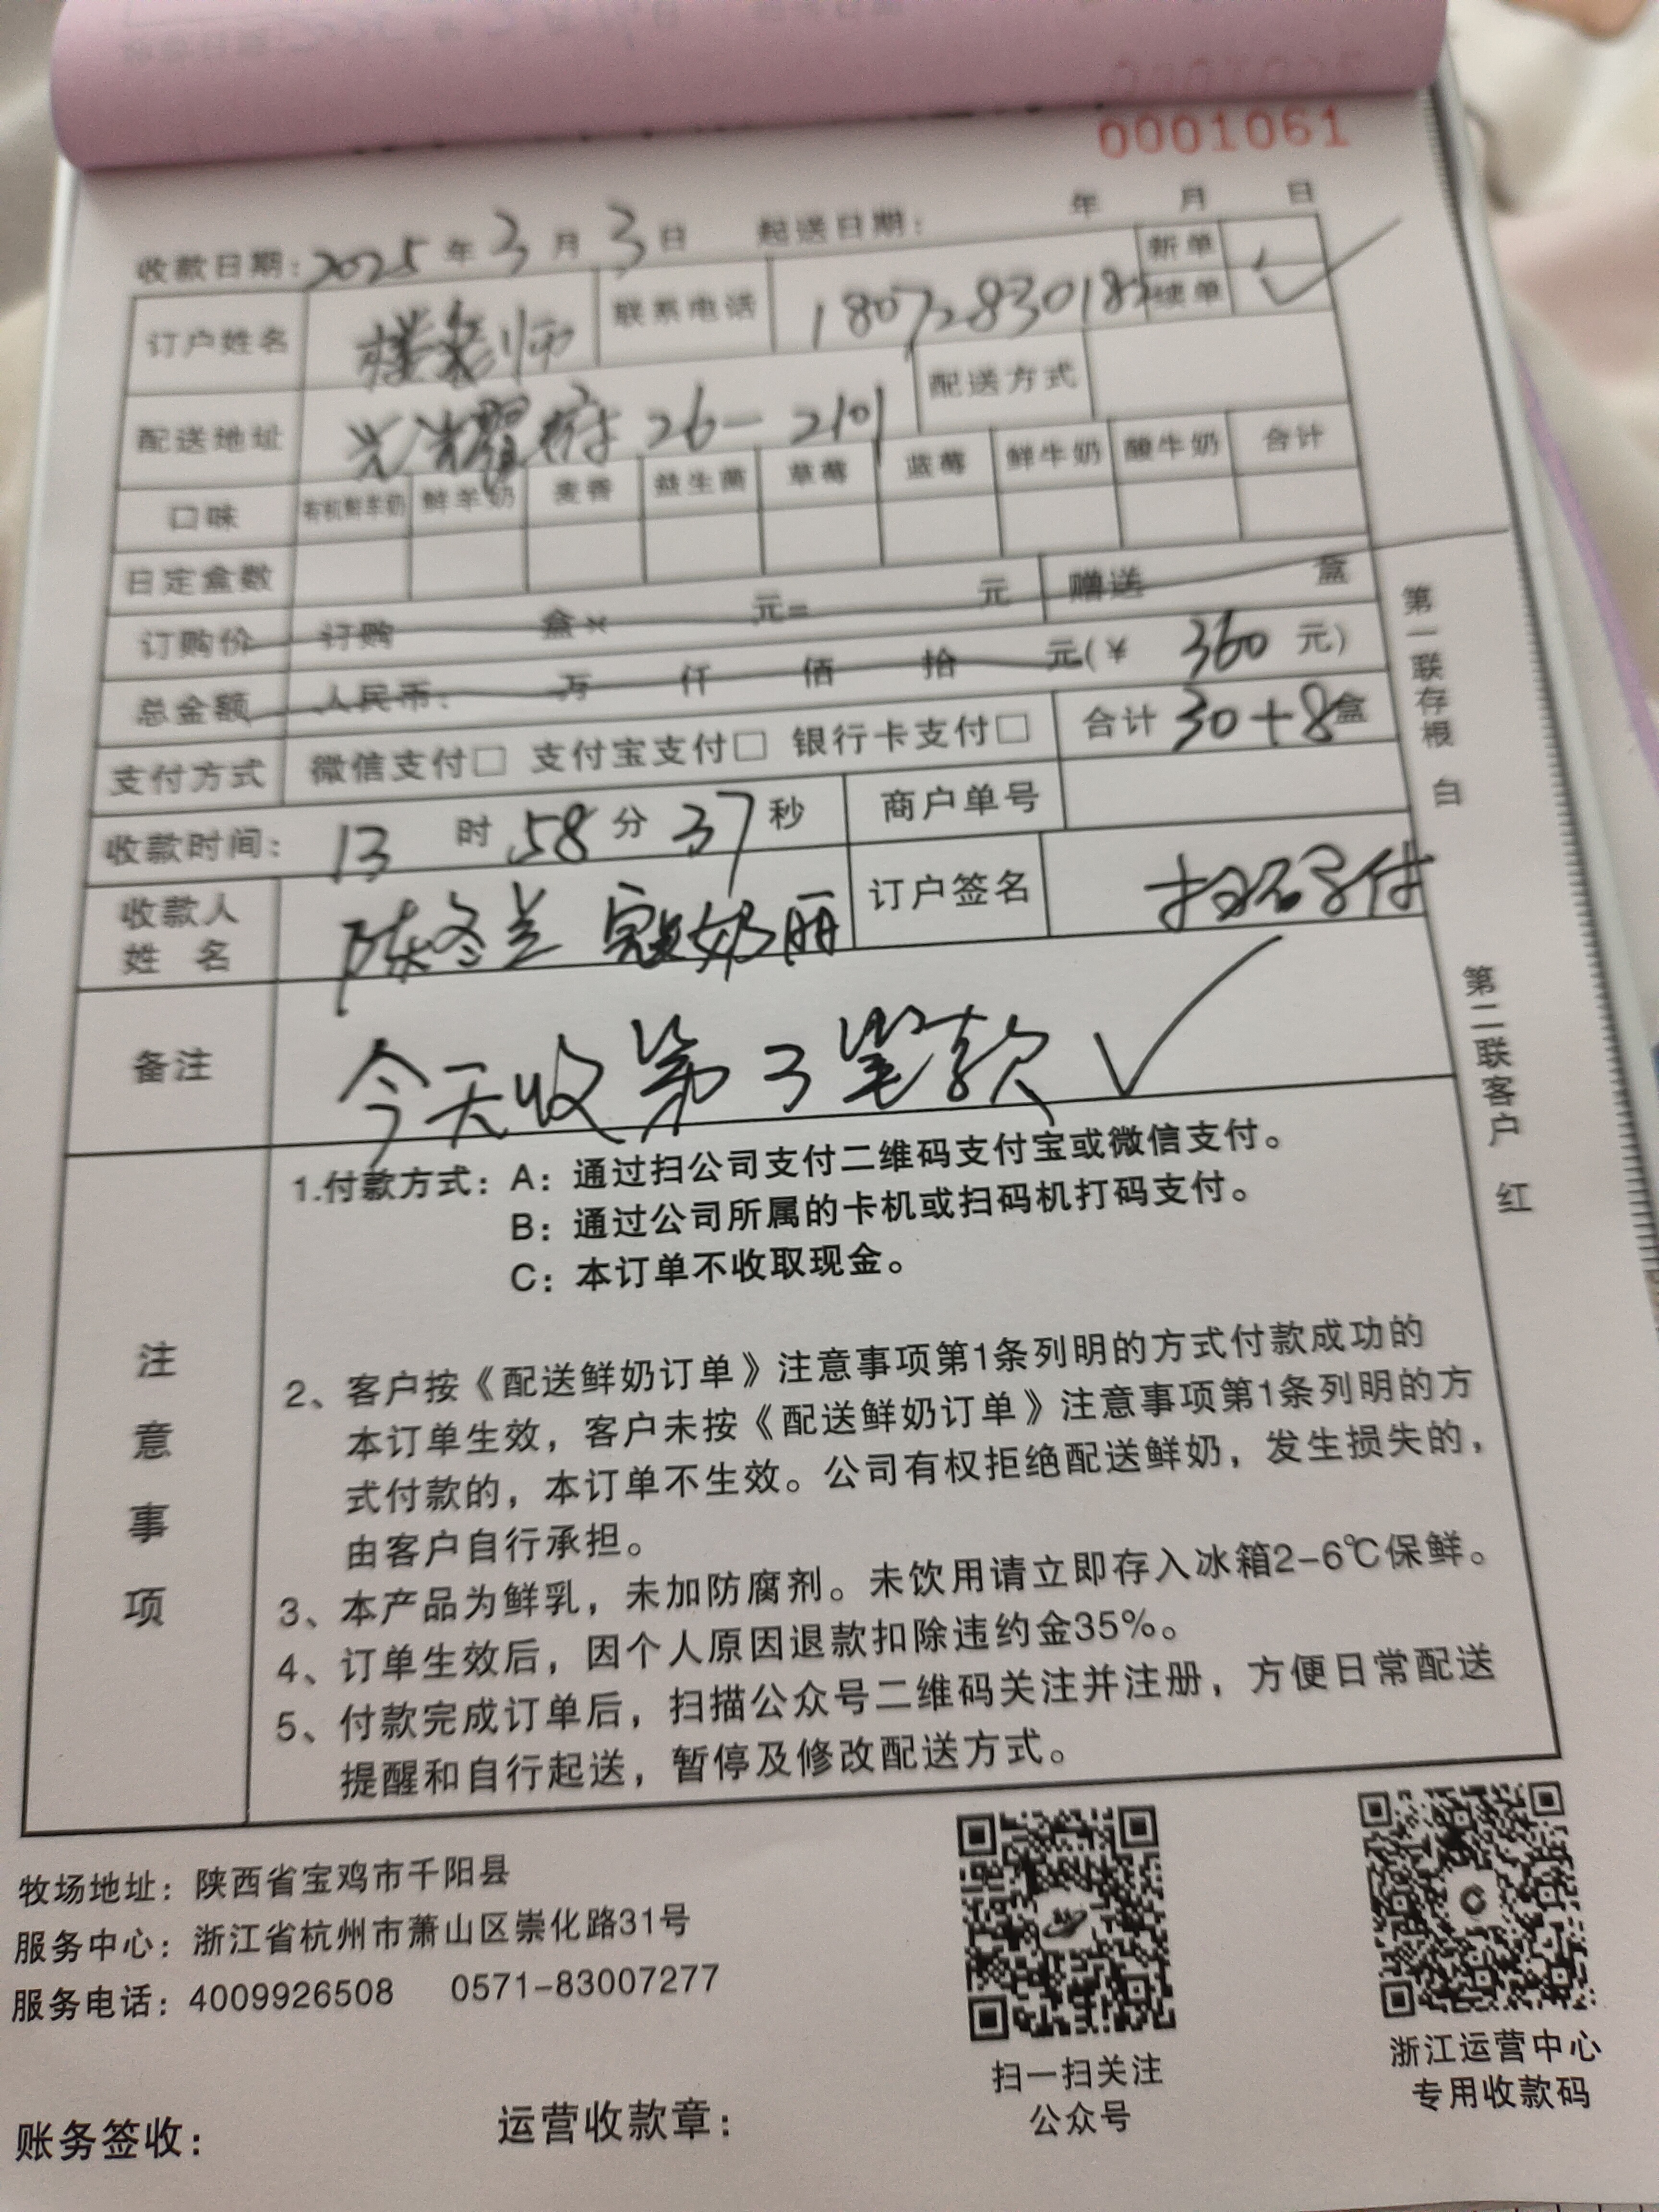 0001061
收款日期：2025年3月3日 起送日期： 年 月 日
订户姓名 楼老师 联系电话 新单
续单 ✓
配送地址 光耀府26-2101 配送方式
口味 有机鲜羊奶 鲜羊奶 麦香 益生菌 草莓 蓝莓 鲜牛奶 酸牛奶 合计
日定盒数
订购价 订购 盒× 元= 元 赠送 盒
总金额 人民币： 万 仟 佰 拾 元(¥ 360 元)
支付方式 微信支付□ 支付宝支付□ 银行卡支付□ 合计 30+8盒
收款时间： 13时58分37秒 商户单号
收款人
姓 名 陈冬兰 寇奶丽 订户签名 扫码号付
备注 今天收第3笔款✓
注意事项
1.付款方式：A：通过扫公司支付二维码支付宝或微信支付。
B：通过公司所属的卡机或扫码机打码支付。
C：本订单不收取现金。
2、客户按《配送鲜奶订单》注意事项第1条列明的方式付款成功的
本订单生效，客户未按《配送鲜奶订单》注意事项第1条列明的方
式付款的，本订单不生效。公司有权拒绝配送鲜奶，发生损失的，
由客户自行承担。
3、本产品为鲜乳，未加防腐剂。未饮用请立即存入冰箱2-6℃保鲜。
4、订单生效后，因个人原因退款扣除违约金35%。
5、付款完成订单后，扫描公众号二维码关注并注册，方便日常配送
提醒和自行起送，暂停及修改配送方式。
第一联存根 白
第二联客户 红
牧场地址：陕西省宝鸡市千阳县
服务中心：浙江省杭州市萧山区崇化路31号
服务电话：4009926508 0571-83007277
扫一扫关注
公众号
浙江运营中心
专用收款码
账务签收：
运营收款章：